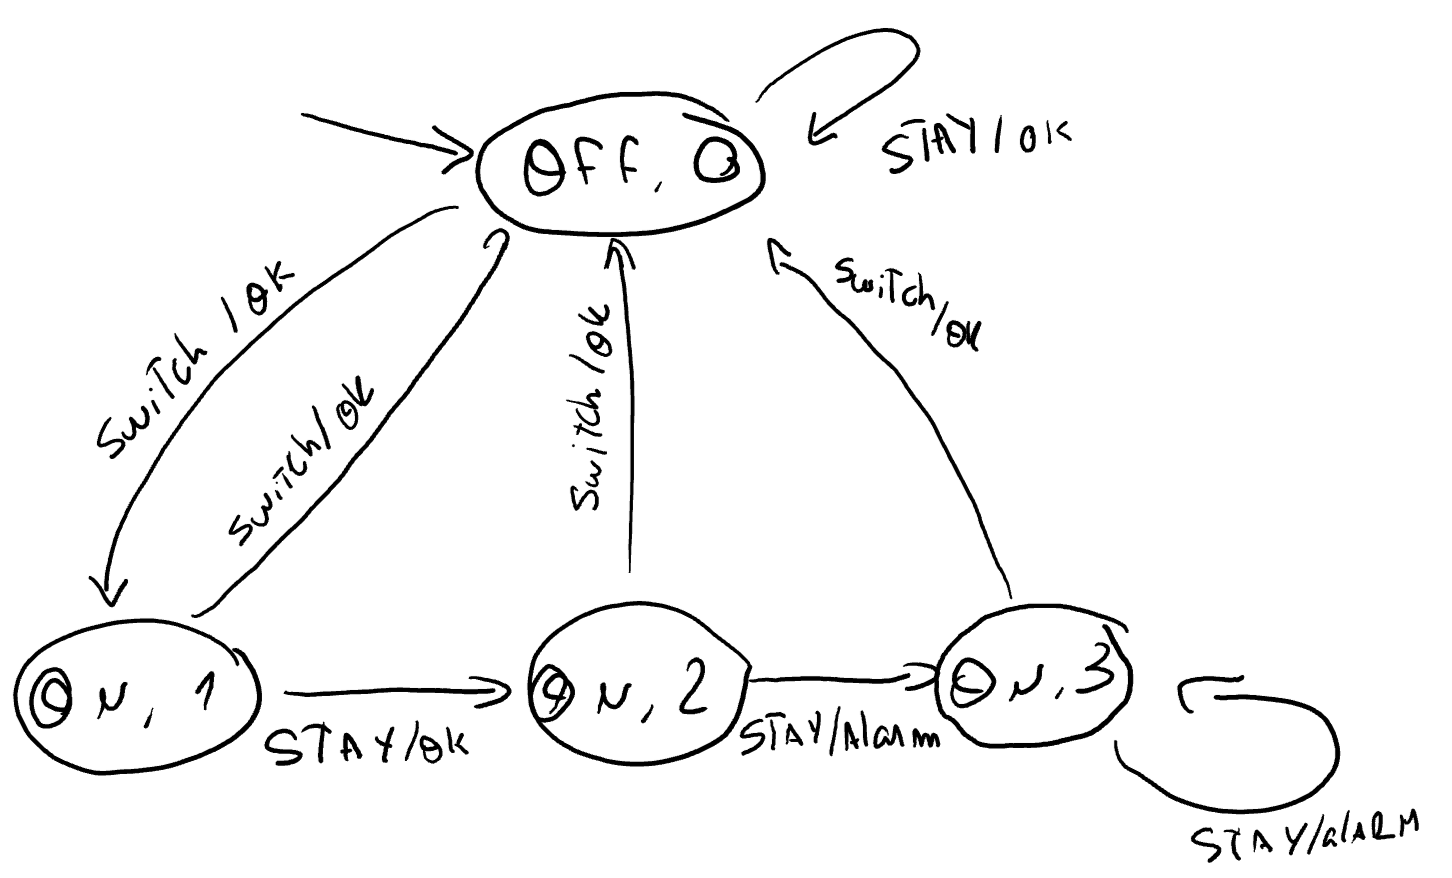 OFF, 0
STAY/OK
Switch/OK
Switch/OK
Switch/OK
Switch/OK
ON, 1
STAY/OK
ON, 2
STAY/Alarm
ON, 3
STAY/alARM